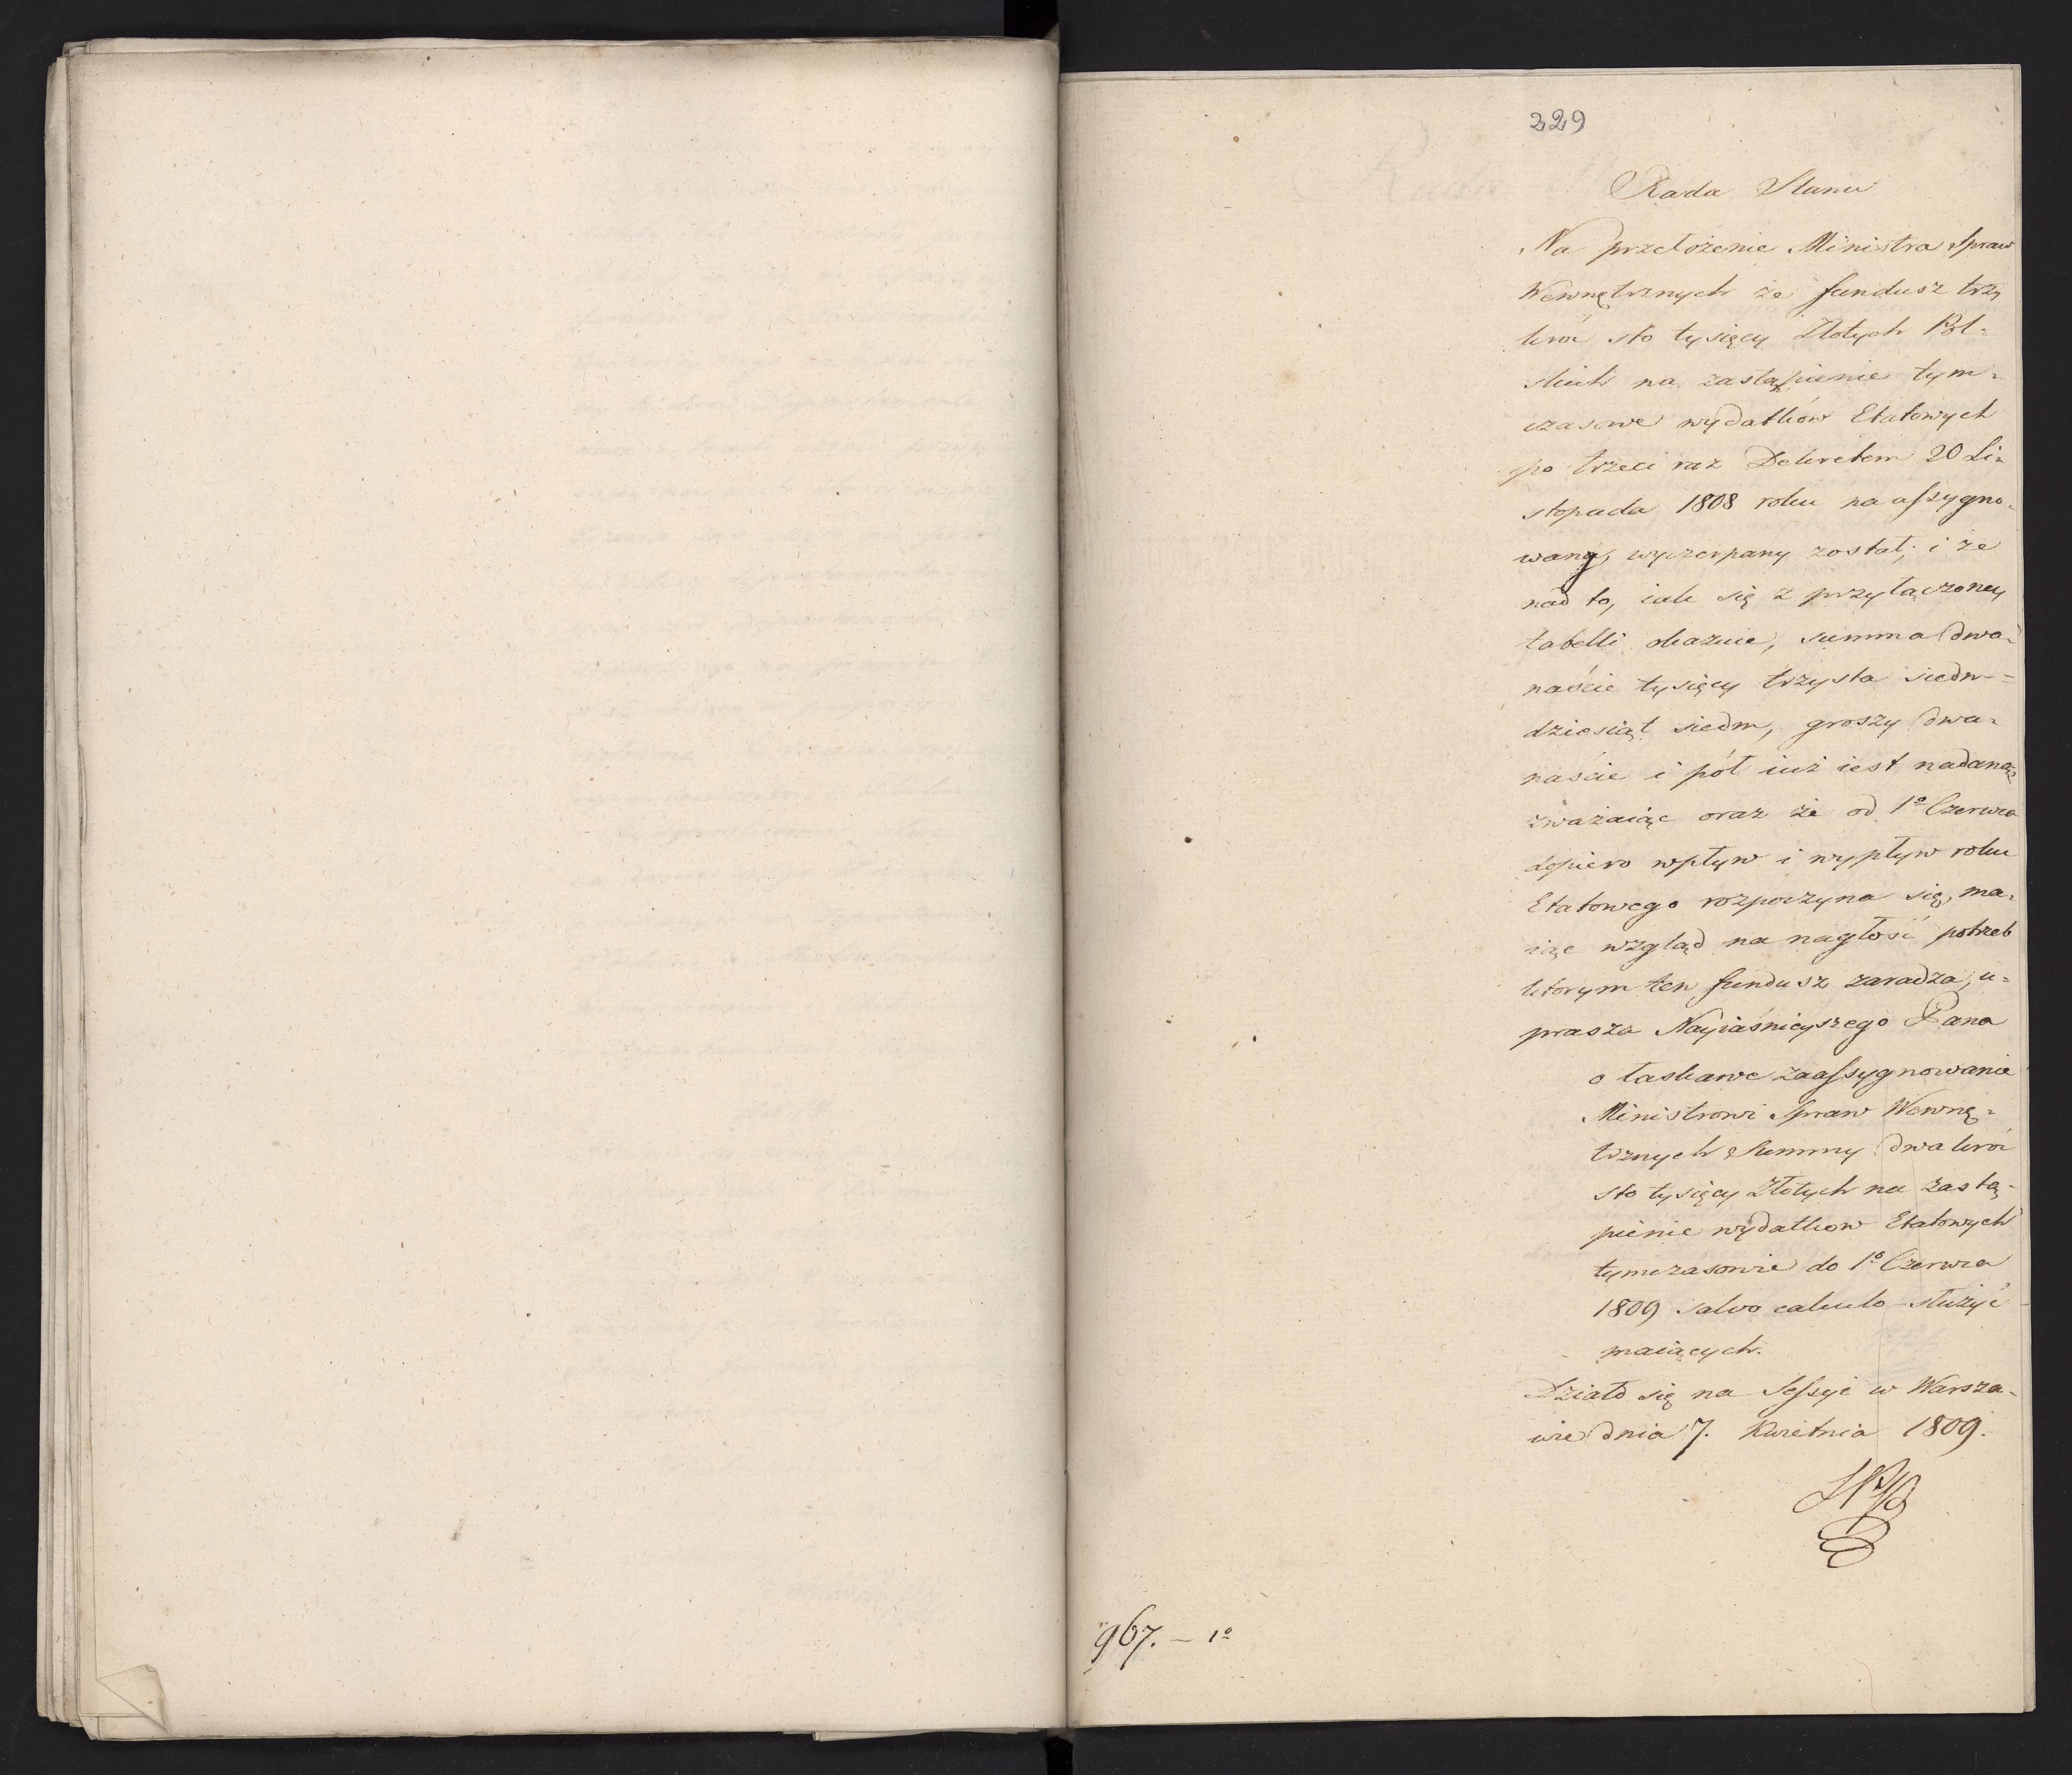 229
Rada Stanu
Na przełożenie Ministra Spraw
Wewnętrznych że fundusz trzy
kroć sto tysięcy Złotych Pol=
skich na zastąpienie tym=
czasowe wydatków Etatowych
po trzeci raz Dekretem 20 Li=
stopada 1808 roku na assygno=
wany, wyczerpany został; i że
nad to, iak się z przyłączoney
tabelli okazuie, summa dwa=
naście tysięcy trzysta siedm=
dziesiąt siedm, groszy dwa=
naście i pół iuż iest nadana,
zważaiąc oraz że od 1º Czerwca
dopiero wpływ i wypływ roku
Etatowego rozpoczyna się, ma=
iąc wzgląd na nagłość potrzeb
którym ten fundusz zaradza, u=
prasza Nayiaśnieyszego Pana
o łaskawe zaassygnowanie
Ministrowi Spraw Wewnę=
trznych Summy dwakroć
sto tysięcy Złotych na zastą=
pienie wydatkow Etatowych
tymczasowie do 1º Czerwca
1809 salvo calculo służyć
maiących.
Działo się na Sessyi w Warsza=
wie dnia 7. Kwietnia 1809.
967. — 1º